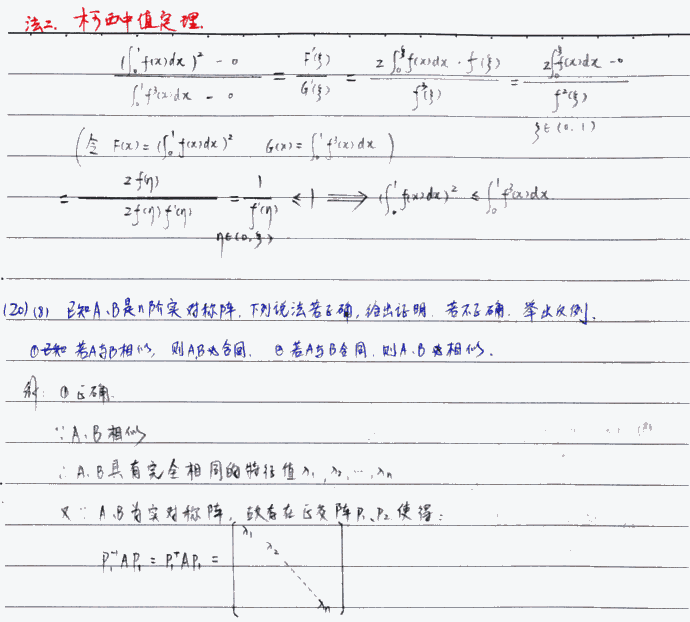 法二、柯西中值定理.
(∫₀¹f(x)dx)² - 0 / ∫₀¹f³(x)dx - 0 = F'(ξ) / G'(ξ) = 2∫₀^ξ f(x)dx · f(ξ) / f³(ξ) = 2∫₀^ξ f(x)dx - 0 / f²(ξ)
ξ∈(0.1)
(令 F(x) = (∫₀¹f(x)dx)² G(x) = ∫₀¹f³(x)dx)
= 2f(η) / 2f(η)f'(η) = 1 / f'(η) ≤ 1 ⟹ (∫₀¹f(x)dx)² ≤ ∫₀¹f³(x)dx.
η∈(0,ξ).
(20) (8) 已知A、B是n阶实对称阵, 下列说法若正确, 给出证明, 若不正确. 举出反例.
① 已知 若A与B相似, 则A,B必合同. ② 若A与B合同. 则A、B必相似.
解: ① 正确.
∵ A、B相似
∴ A、B具有完全相同的特征值λ₁, λ₂, …, λn
又∵ A、B为实对称阵, 故存在正交阵P₁、P₂使得:
P₁⁻¹AP₁ = P₁ᵀAP₁ = [λ₁ λ₂ λn]